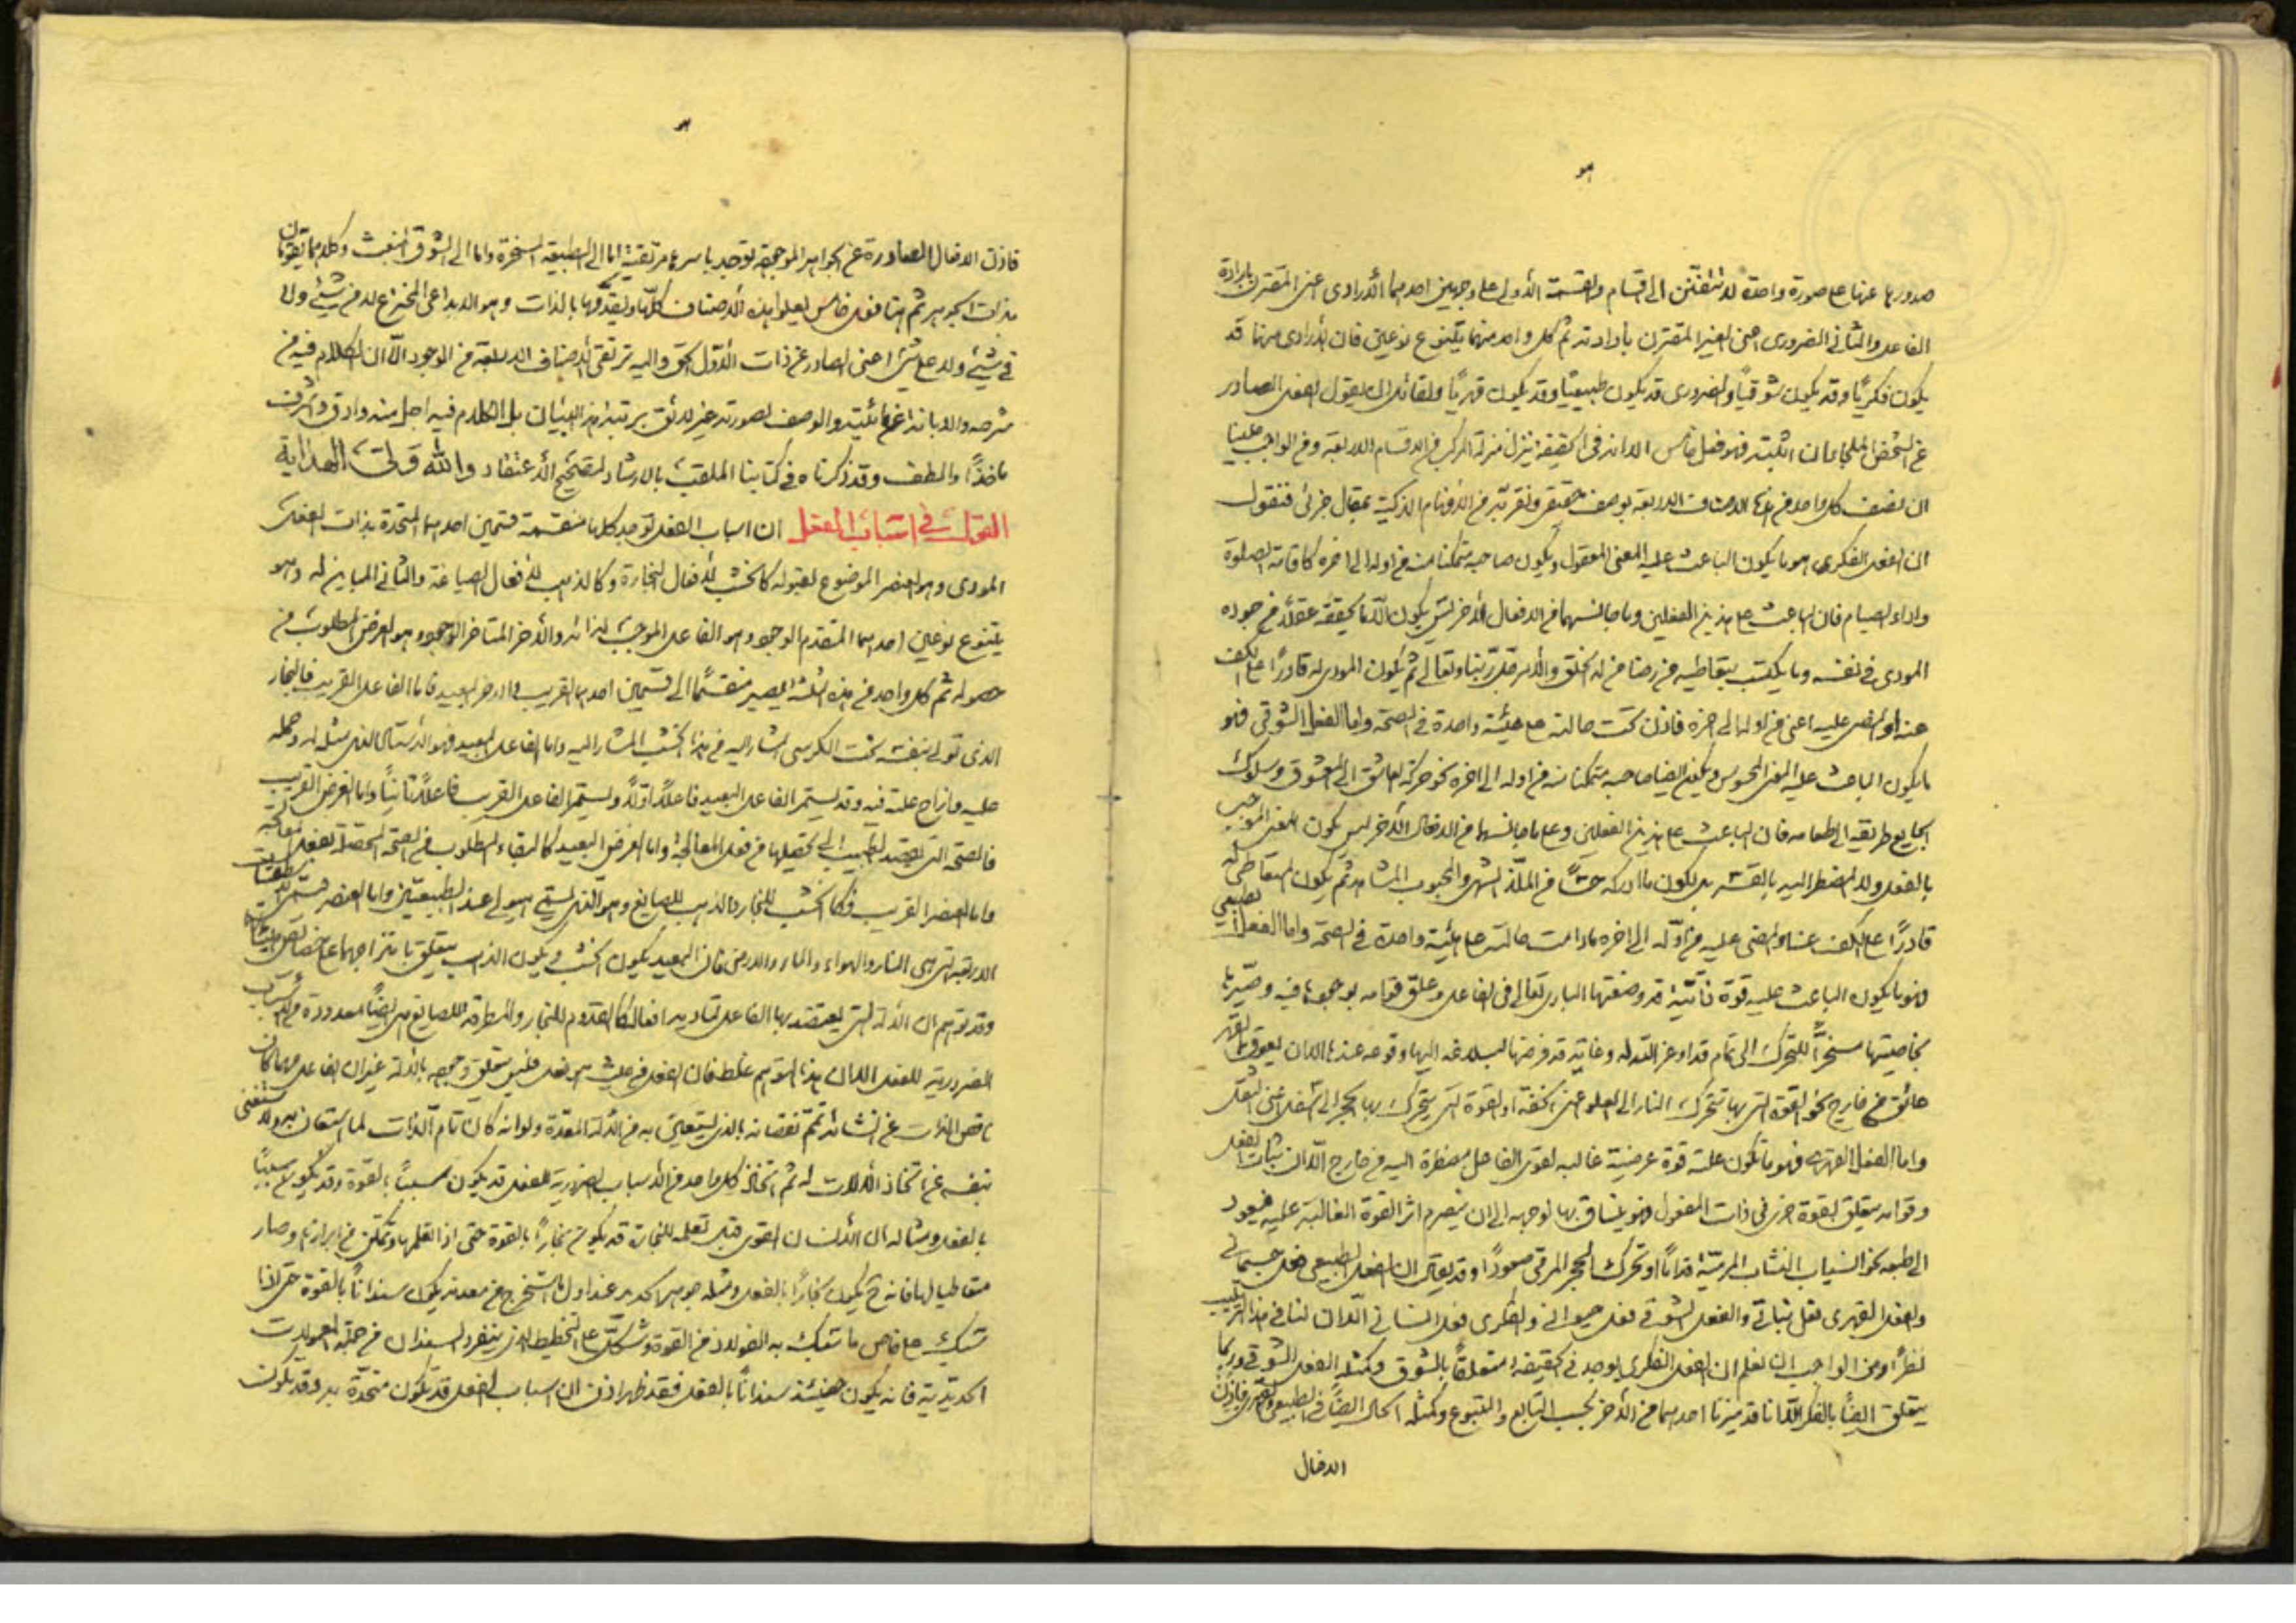 هو
صدورها عنها على صورة واحدة لا تنقسم الى اقسام والقسمة الأولى على وجهين احدهما الأرادى اعنى المقترن بارادة
الفاعل والثانى الضرورى اعنى الغير المقترن بأرادته ثم كل واحد منهما يتنوع نوعين فان الأرادى منهما قد
يكون فكريًا وقد يكون شوقيًا والضرورى قد يكون طبيعيًا وقد يكون قهريًا ولقائل ان يقول الفعل الصادر
عن الشخص الملجأ فهو فعل خامس الا انه فى الحقيقة ينزل منزلة المركب من الاقسام الاربعة ومن الواجب علينا
ان نصف كل واحد من هذه الاصناف الاربعة بوصف حقيقى ونقربه من الأفهام الذكية بمقال جزئى فنقول
ان الفعل الفكرى هو ما يكون الباعث عليه المعنى المعقول ويكون صاحبه متمكنا منه من اوله الى اخره كاقامة الصلوة
واداء الصيام فان الباعث على هذين الفعلين وما جانسهما من الافعال الأخر ليس يكون الا ما يحققه عقلاً من جوده
المودى فى نفسه وما يكتسب بتعاطيه من رضا من له الخلق والأمر جل ربنا وتعالى ثم يكون المودى له قادرًا على الكف
عنه او المضى عليه اعنى من اوله الى اخره فاذن كانت حالته على هيئة واحدة فى الصحة واما الفعل الشوقى فهو
ما يكون الباعث عليه المعنى المحسوس ويكون ايضا صاحبه متمكنا منه من اوله الى اخره نحو حركة العاشق الى المعشوق وسلوك
الجايع طريقه الى طعامه فان الباعث على هذين الفعلين وعلى ما جانسهما من الافعال الأخر ليس يكون المعنى الموجب
بالعقل ولا المضطر اليه بالقسر بل يكون ما ادركه حسًا من الملذ الشهى والمحبوب المشاهد ثم يكون المتعاطى له
قادرًا على الكف عنه والمضى عليه من اوله الى اخره ما دامت حالته على هيئة واحدة فى الصحة واما الفعل الطبيعى
فهو ما يكون الباعث عليه قوة ذاتية قد وضعتها البارى تعالى فى الفاعل وعلق قوامه بوجودها فيه وصيرها
بخاصيتها مسخرًا للتحرك الى تمام قد اوعز التدله وغاية قد فرضها لبلاغه اليها وقوعه عندها الا ان يعوق القهر
عائق من خارج نحو القوة التى بها تتحرك النار الى العلو اعنى الخفة او القوة التى يتحرك بها الحجر الى السفل اعنى الثقل
واما الفعل القهرى فهو ما تكون علته قوة عرضية غالبة لقوى الفاعل مضطرة اليه من خارج الا ان ثبات الفعل
وقوامه يتعلق بقوة اخرى فى ذات المفعول فهو ينساق بها لوجهه الى ان ينصرم اثر القوة الغالبة عليه فيعود
الى طبعه نحو انسياب النشاب المرمية قدامًا او تحرك الحجر المرقى صعودًا وقد يقال ان الفعل الطبيعى فعل جسمانى
والفعل القهرى فعل نباتى والفعل الشوقى فعل حيوانى والفكرى فعل انسانى الا ان لنا فى هذا الترتيب
نظرًا ومن الواجب ان نعلم ان الفعل الفكرى يوجد فى الحقيقة متعلقًا بالشوق وكمثله الفعل الشوقى وربما
يتعلق ايضًا بالفكر الا انا قد ميزنا احدهما من الأخر بحسب التابع والمتبوع وكمثله الحال ايضًا فى الطبيعى والقهرى فاذن
الافعال
هو
فاذن الافعال الصادرة عن الجواهر الموجهة توجد باسرها مرتقية اما الى الطبيعة المسخرة واما الى الشوق المنبعث وكلاهما يتقومان
بذات الجوهر ثم هنا فعل خامس يعلو هذه الأصناف كلها ويقدمها بالذات وهو الابداعى المخترع لا من شىء ولا
فى شىء ولا على شىء اعنى الصادر عن ذات الأول الحق واليه ترتقى الاصناف الاربعة من الوجود الا ان الكلام فيه من
شرحه والابانة عن مائيته والوصف لصورته غير لائق برتبة هذا البيان بل الكلام فيه اجل منه وادق واشرف
مأخذًا والطف وقد ذكرناه فى كتابنا الملقب بالارشاد لتصحيح الأعتقاد والله ولى الهداية
القول فى اسباب الفعل ان اسباب الفعل توجد كلها منقسمة قسمين احدهما المتحدة بذات الفعل
المودى وهو العنصر الموضوع لقبوله كالخشب لأفعال النجارة وكالذهب لأفعال الصياغة والثانى المباين له وهو
يتنوع نوعين احدهما المتقدم الوجود وهو الفاعل الموجب لذاته والأخر المتأخر الوجود وهو الغرض المطلوب من
حصوله ثم كل واحد من هذه الثلثة يصير منقسمًا الى قسمين احدهما القريب والاخر البعيد فاما الفاعل القريب فالنجار
الذى تولى بنفسه نحت الكرسى المشار اليه من هذا الخشب المشار اليه واما الفاعل البعيد فهو الأستاد الذى مثله له وحمله
عليه وازاح علته فيه وقد يسمى الفاعل البعيد فاعلاً اولاً ويسمى الفاعل القريب فاعلاً ثانيًا واما الغرض القريب
فالصحة التى يقصد الطبيب الى تحصيلها من فعل المعالجة واما الغرض البعيد كالبقاء المطلوب من الصحة المحصلة بفعل معالجته
واما العنصر القريب فكالخشب للنجار والذهب للصايغ وهو الذى يسمى هيولى عند الطبيعيين واما العنصر
الاربعة التى هى النار والهواء والماء والارض فان البعيد يكون الخشب ويكون الذهب يتعلق بامتزاجهما على خصائص
وقد توهم ان الألة التى يعتضد بها الفاعل لتأدية افعاله كالقدوم للنجار والمطرقة للصايغ هى ايضًا معدودة من الأسباب
الضرورية للفعل الا ان هذا التوهم غلط فان الفعل من حيث هو فعل فليس يتعلق وجوده بالألة غير ان الفاعل مهما كان
ناقص الذات عن انشائه تمم نقصانه بالذى يستعين به من الألة المعدة ولو انه كان تام الذات لما استعان به ولاستغنى
بنفسه عن اتخاذ الألات له ثم اتخاذ كل واحد من الأسباب الضرورية للفعل قد يكون سببًا بالقوة وقد يكون سببًا
بالفعل ومثاله ان الأنسان القوى قبل تعلمه للنجارة قد يكون نجارًا بالقوة حتى اذا تعلمها وتمكن من ابرازها وصار
متعاطيا لها فانه يكون نجارًا بالفعل ومثله جوهر الحديد عند اول ما استخرج من معدنه يكون سندانًا بالقوة حتى اذا
سبك على خاص ما سبك به الفولاد من القوة وشكل على التخطيط الذى ينفرد السندان من جملة المعمولات
الحديدية فانه يكون حينئذ سندانًا بالفعل فقد ظهر اذن ان اسباب الفعل قد يكون متحدة به وقد يكون